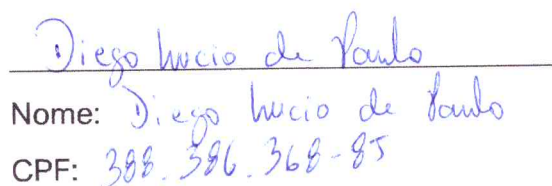 Diego Lucio de Paulo
Nome: Diego Lucio de Paulo
CPF: 388.386.368-85